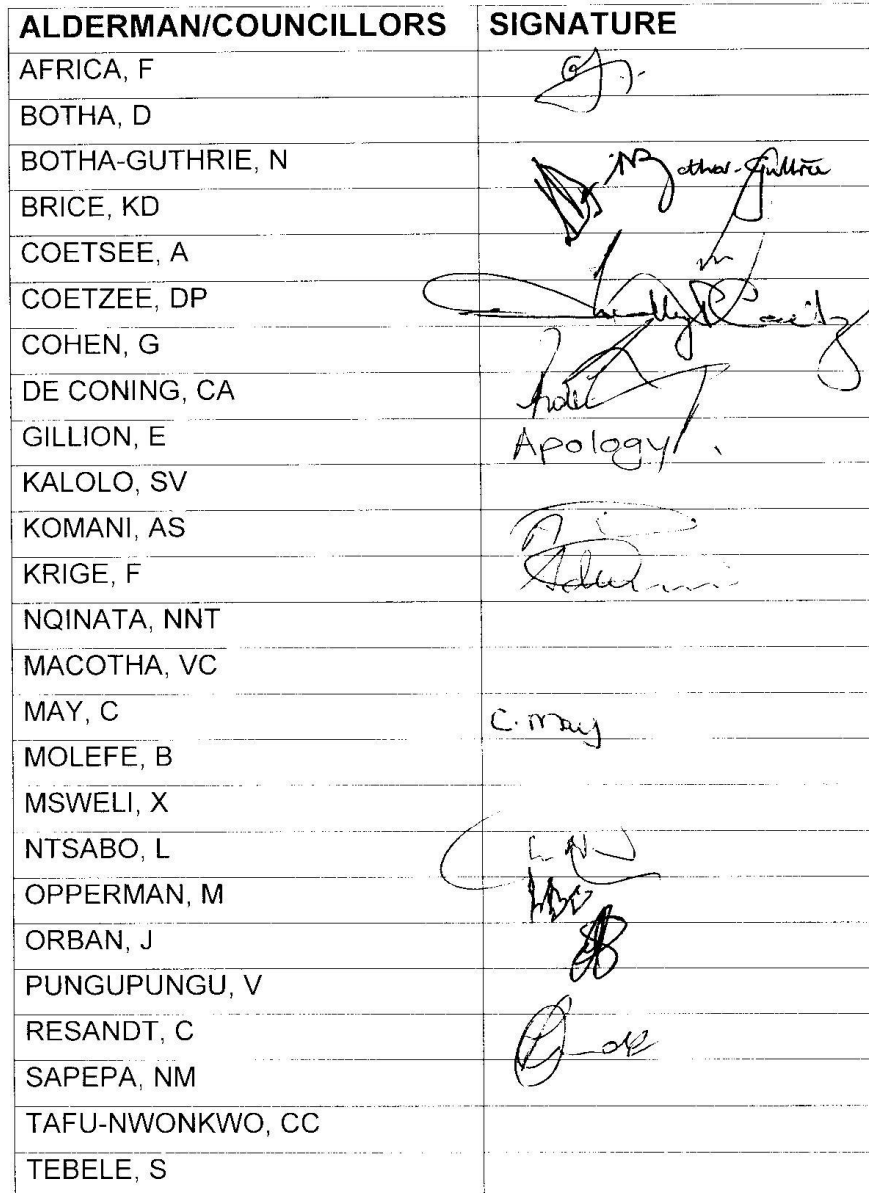 ALDERMAN/COUNCILLORS SIGNATURE
AFRICA, F
BOTHA, D
BOTHA-GUTHRIE, N NBotha-Guthrie
BRICE, KD
COETSEE, A
COETZEE, DP
COHEN, G
DE CONING, CA
GILLION, E Apology
KALOLO, SV
KOMANI, AS
KRIGE, F
NQINATA, NNT
MACOTHA, VC
MAY, C C. May
MOLEFE, B
MSWELI, X
NTSABO, L
OPPERMAN, M
ORBAN, J
PUNGUPUNGU, V
RESANDT, C
SAPEPA, NM
TAFU-NWONKWO, CC
TEBELE, S